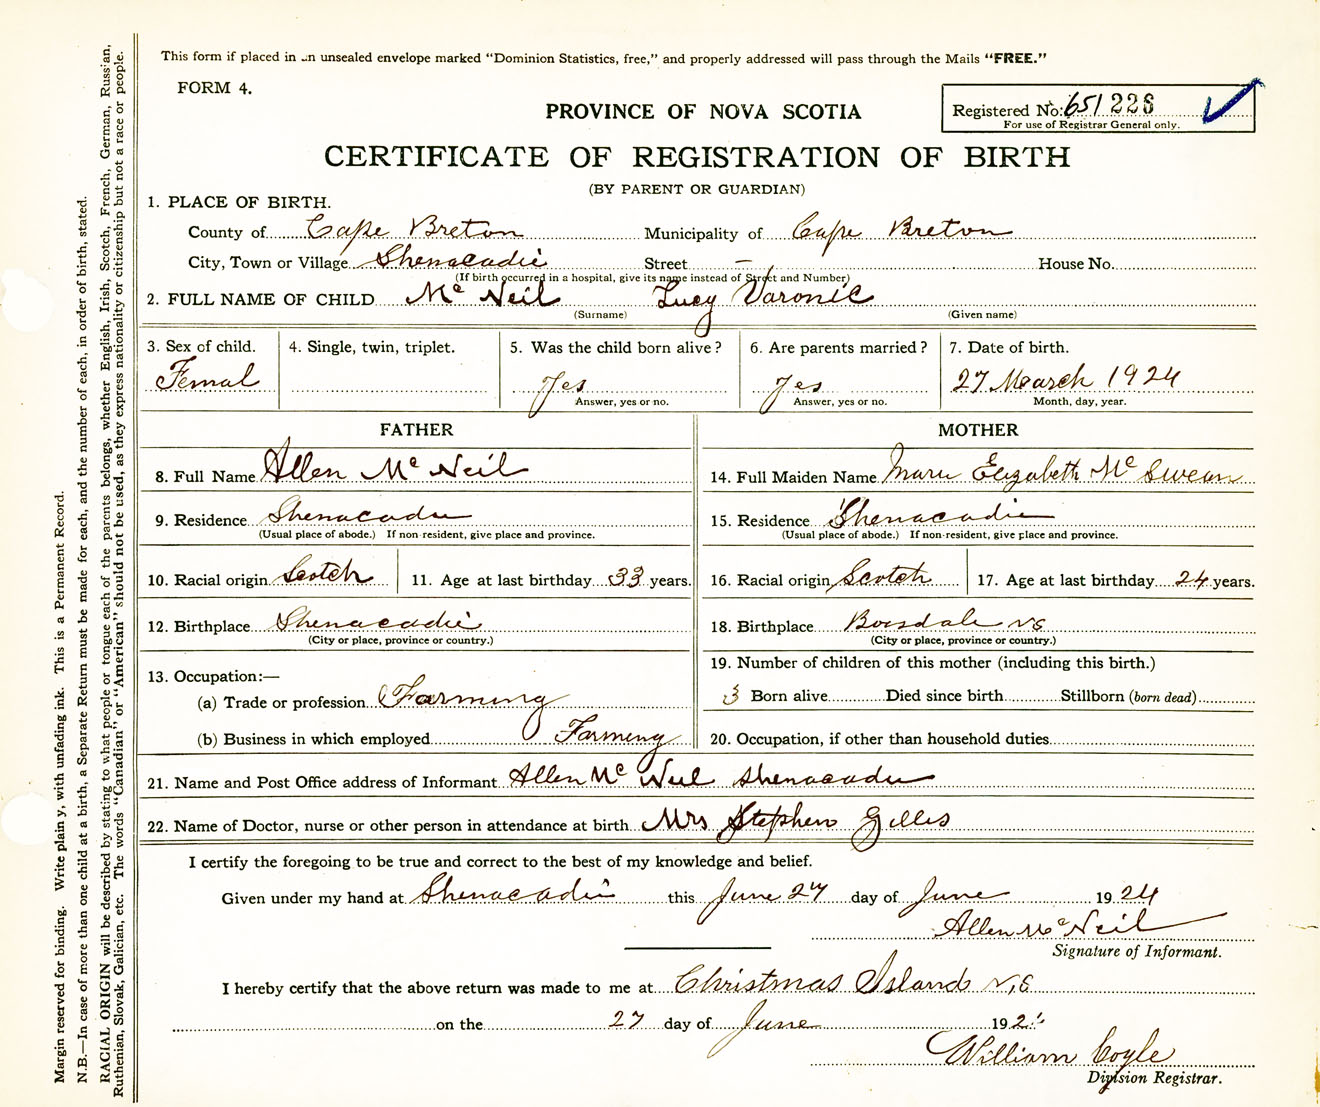 This form if placed in an unsealed envelope marked "Dominion Statistics, free," and properly addressed will pass through the Mails "FREE."
FORM 4.
PROVINCE OF NOVA SCOTIA
Registered No: 651 226
For use of Registrar General only.
CERTIFICATE OF REGISTRATION OF BIRTH
(BY PARENT OR GUARDIAN)
1. PLACE OF BIRTH.
County of Cape Breton Municipality of Cape Breton
City, Town or Village Shenacadie Street – House No.
(If birth occurred in a hospital, give its name instead of Street and Number)
2. FULL NAME OF CHILD Mc Neil Lucy Varonic
(Surname) (Given name)
3. Sex of child. 4. Single, twin, triplet. 5. Was the child born alive? 6. Are parents married? 7. Date of birth.
Femal Yes Yes 27 March 1924
Answer, yes or no. Answer, yes or no. Month, day, year.
FATHER MOTHER
8. Full Name Allen Mc Neil 14. Full Maiden Name Mary Elizabeth Mc Swean
9. Residence Shenacadie 15. Residence Shenacadie
(Usual place of abode.) If non-resident, give place and province. (Usual place of abode.) If non-resident, give place and province.
10. Racial origin Scotch 11. Age at last birthday 33 years. 16. Racial origin Scotch 17. Age at last birthday 24 years.
12. Birthplace Shenacadie 18. Birthplace Boisdale NS
(City or place, province or country.) (City or place, province or country.)
13. Occupation:— 19. Number of children of this mother (including this birth.)
(a) Trade or profession Farming 3 Born alive Died since birth Stillborn (born dead)
(b) Business in which employed Farming 20. Occupation, if other than household duties
21. Name and Post Office address of Informant Allen Mc Neil Shenacadie
22. Name of Doctor, nurse or other person in attendance at birth. Mrs Stephen Gillis
I certify the foregoing to be true and correct to the best of my knowledge and belief.
Given under my hand at Shenacadie this June 27 day of June 1924
Allen Mc Neil
Signature of Informant.
I hereby certify that the above return was made to me at Christmas Island N,S
on the 27 day of June 192
William Coyle
Division Registrar.
Margin reserved for binding. Write plainly, with unfading ink. This is a Permanent Record.
N.B.—In case of more than one child at a birth, a Separate Return must be made for each, and the number of each, in order of birth, stated.
RACIAL ORIGIN will be described by stating to what people or tongue each of the parents belongs, whether English, Irish, Scotch, French, German, Russian,
Ruthenian, Slovak, Galician, etc. The words "Canadian" or "American" should not be used, as they express nationality or citizenship but not a race or people.